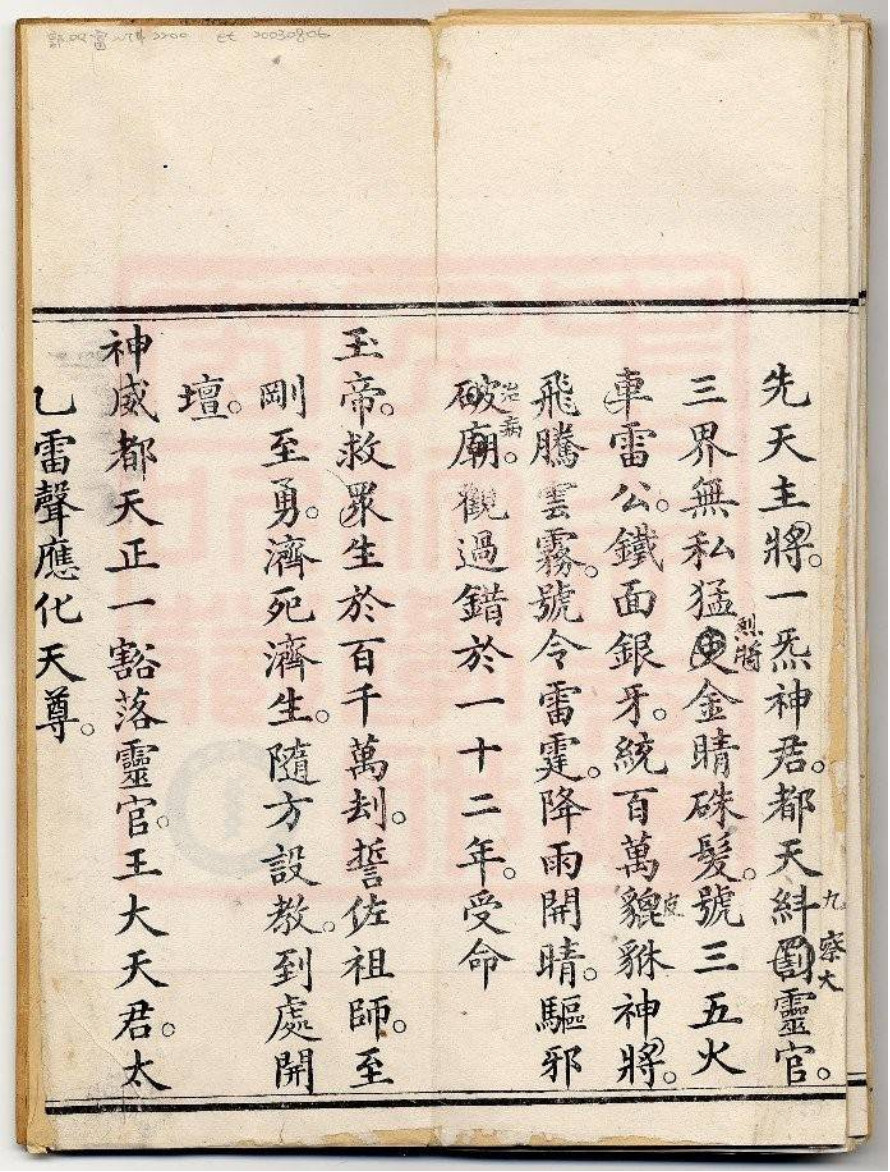 先天主將。一炁神君。都天糾罰靈官。
九 察大
三界無私猛吏金睛硃髮。號三五火
烈將
車雷公。鐵面銀牙。統百萬貔貅神將。
皮
飛騰雲霧。號令雷霆。降雨開晴。驅邪
治病
破廟。觀過錯於一十二年。受命
玉帝。救眾生於百千萬刼。誓佐祖師。至
剛至勇。濟死濟生。隨方設教。到處開
壇。
神威都天正一豁落靈官。王大天君。太
乙雷聲應化天尊。
20030806